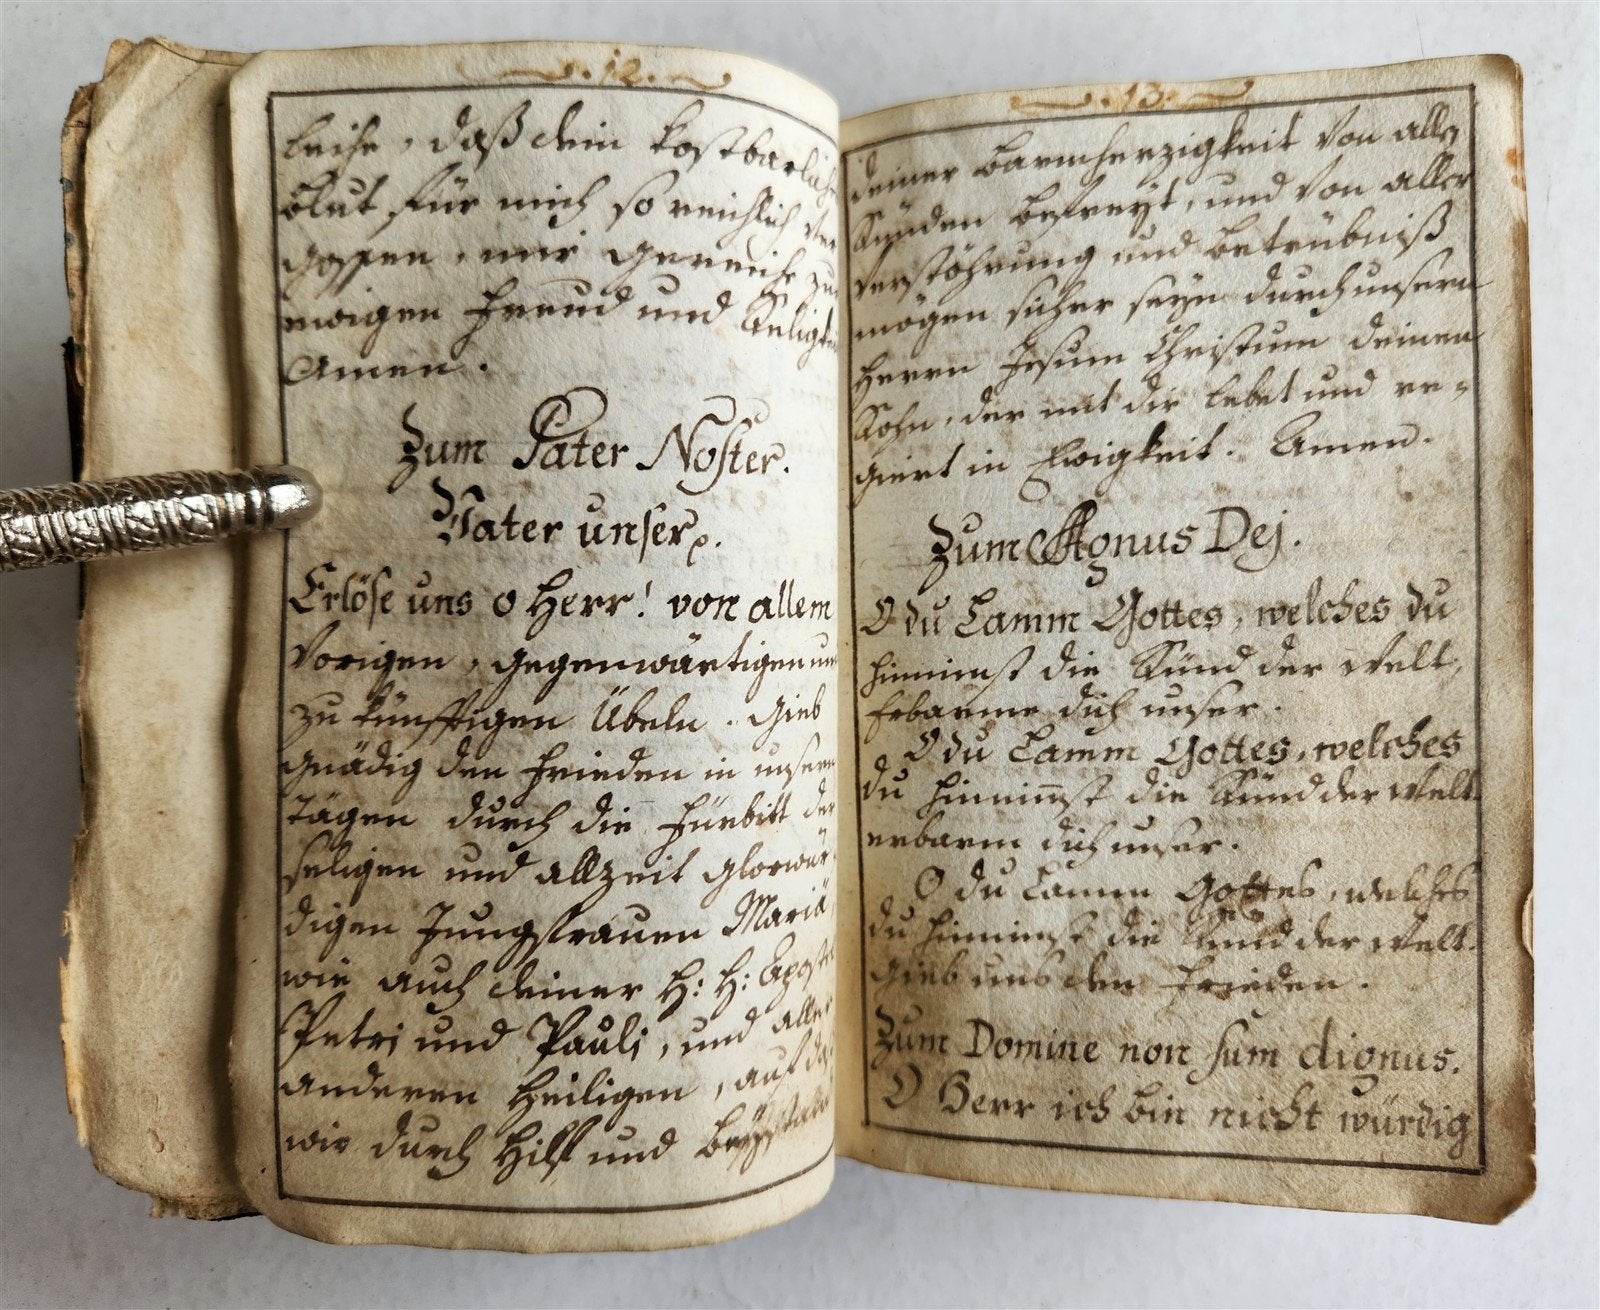 . 12 .
leihe, daß dein kostbarliches
Blut für mich so reichlich ver
gossen, mir gereiche zur
ewigen Freud und Seligkeit
Amen.
Zum Pater Noster.
Vater unser
Erlöse uns o Herr! von allem
Vorigen, gegenwärtigen und
zukünfftigen Übeln. Gieb
gnädig den Frieden in unsern
Tägen durch die Fürbitt der
seligen und allzeit glorwür
digen Jungfrauen Mariä,
wie auch deiner H: H: Apostel
Petri und Pauli, und aller
anderen Heiligen, auf daß
wir durch Hilf und Beystand
. 13 .
deiner Barmherzigkeit von allen
Sünden befreyt, und von aller
Verstöhrung und Betrübniß
mögen sicher seyn durch unsern
Herrn Jesum Christum deinen
Sohn, der mit dir lebet und re=
giert in Ewigkeit. Amen.
Zum Agnus Dej.
O du Lamm Gottes, welches du
hinnimst die Sünd der Welt,
Erbarme dich unser.
O du Lamm Gottes, welches
du hinnimst die Sünd der Welt.
erbarm dich unser.
O du Lamm Gottes, welches
du hinnimst die Sünd der Welt.
Gieb uns den Frieden.
Zum Domine non sum dignus.
O Herr ich bin nicht würdig